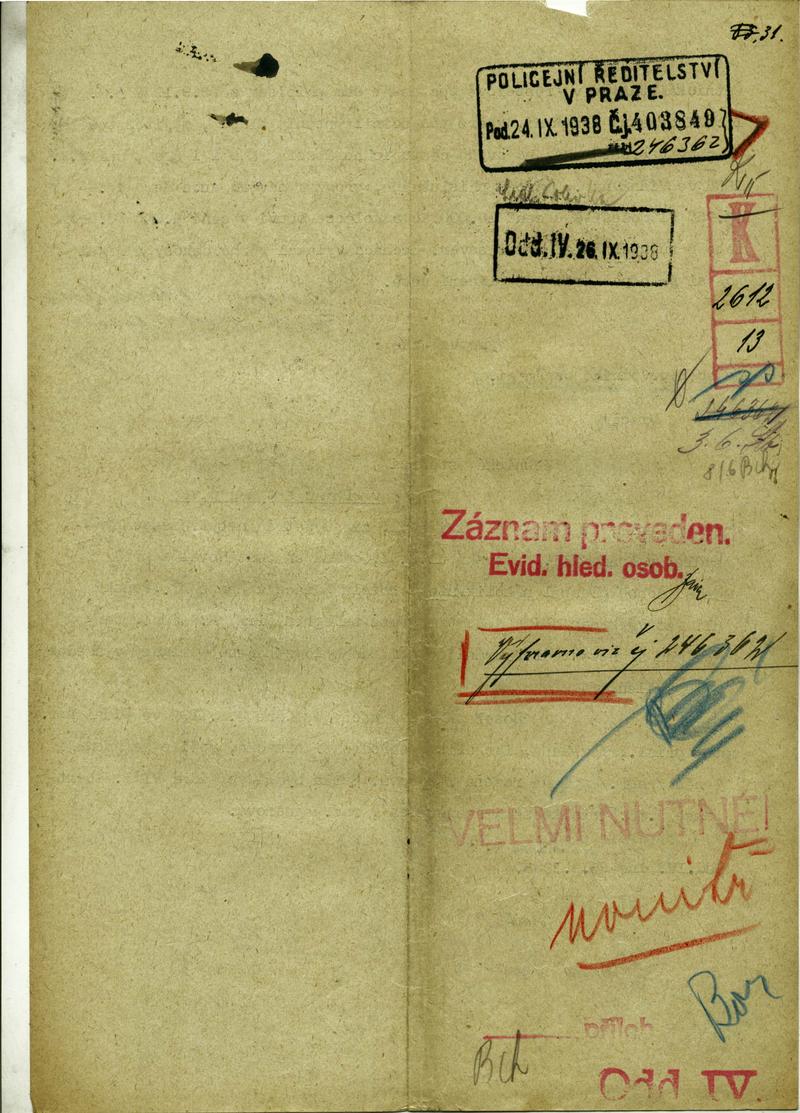 31.
POLICEJNÍ ŘEDITELSTVÍ
V PRAZE.
Pod. 24. IX. 1938 Čj. 403849
246362
Odd. IV. 26. IX. 1938
K
2612
13
3. 6.
8/6 Bch
Záznam proveden.
Evid. hled. osob.
Vypraveno viz čj 246362/
VELMI NUTNÉ!
příloh
Bch
Odd. IV.